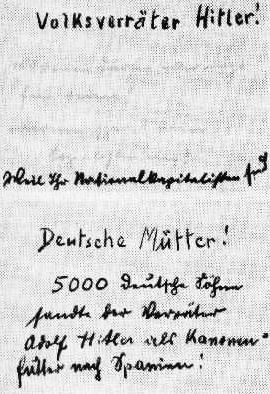 Volksverräter Hitler!
Weil Ihr Nationalkapitalisten seid
Deutsche Mütter!
5000 deutsche Söhne
sandte der Verräter
Adolf Hitler als Kanonen-
futter nach Spanien!